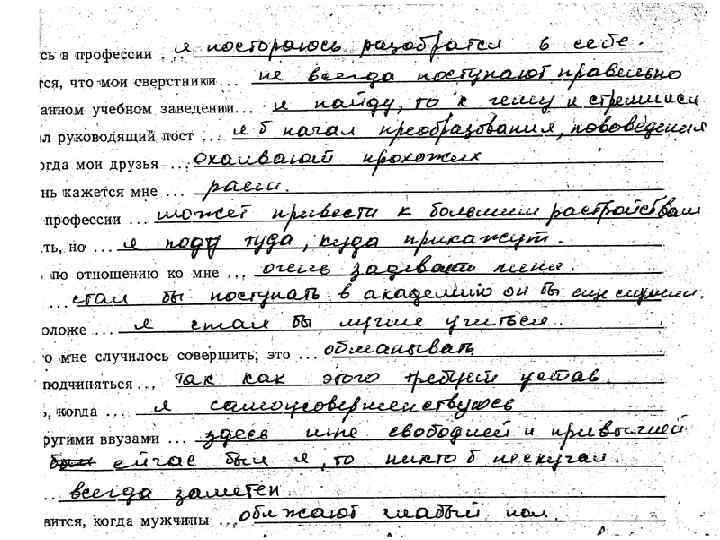 сь в профессии ... я постораюсь разобратся в себе.
тся, что мои сверстники ... не всегда поступают правельно
анном учебном заведении... я найду, то к чему и стремился
ал руководящий пост ... я б начал преобразования, нововедения
огда мои друзья ... охаивают прохожих
нь кажется мне ...
профессии ... может привести к большим растройствам
ть, но ... я поду туда, куда прикажут.
по отношению ко мне ... очень задевает меня.
... стал бы поступать в академию он бы еще служил.
оложе ... я стал бы лучше учиться.
о мне случилось совершить, это ... обманывать
подчиняться ... так как этого требует устав.
, когда ... я самоусовершенствуюсь
ругими ввузами ... здесь мне свободней и привычней
ейчас был я, то никто б не скучал
... всегда заметен
вится, когда мужчины ... обижают слабый пол.